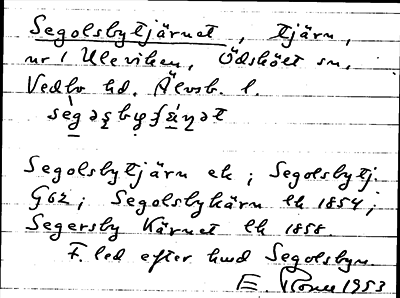 Segolsbytjärnet, tjärn,
nr 1 Uleviken, Ödskölt sn,
Vedbo hd. Älvsb. l.
Segolsbytjärn ek; Segolsbytj.
G62; Segolsbykärn lk 1854;
Segersby Kärnet lk 1858.
F. led efter hmd Segolsbyn
E. 1953